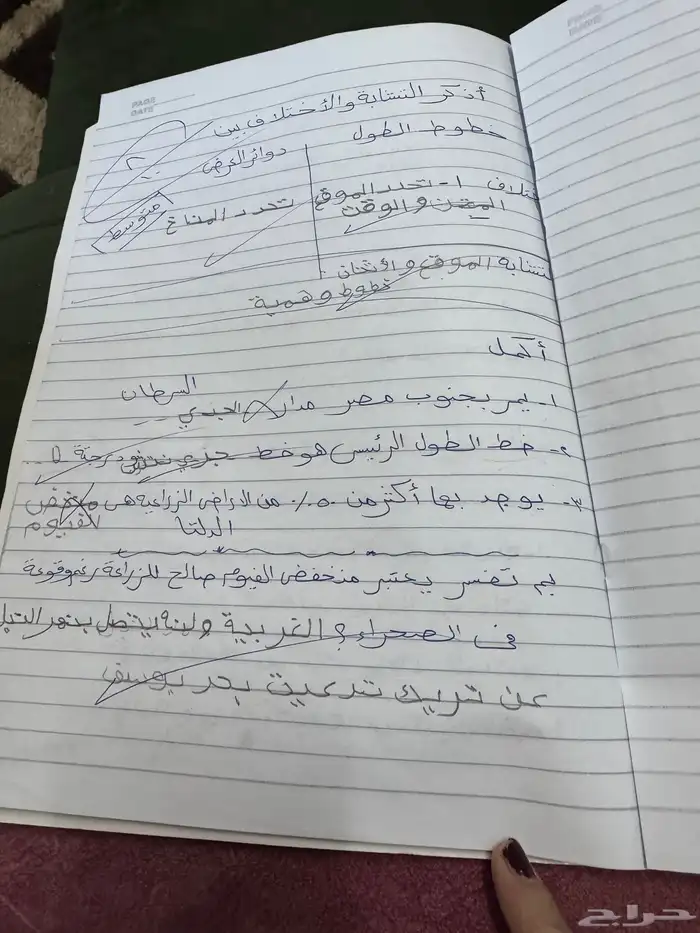 PAGE
DATE
PAGE
DATE
أذكر التشابة والأختلاف بين
خطوط الطول
دوائر العرض
٢
ختلاف ١- تحدد الموقع
والوقت
تحدد المناخ
متوسط
تشابة الموقع و الأتجان
خطوط وهمية
أكمل
السرطان
١- يمر بجنوب مصر مدار الجدي
٢- خط الطول الرئيسى هو خط جرينتش درجة 0
٣- يوجد بها أكثر من ٥٠٪ من الاراضى الزراعية هى منخفض
الفيوم
الدلتا
بم تفسر يعتبر منخفض الفيوم صالح للزراعة رغم وقوعة
فى الصحراء؟ الغربية ولنه يتصل بنهر النيل
عن تريك تدعيت بحر يوسف
حراج